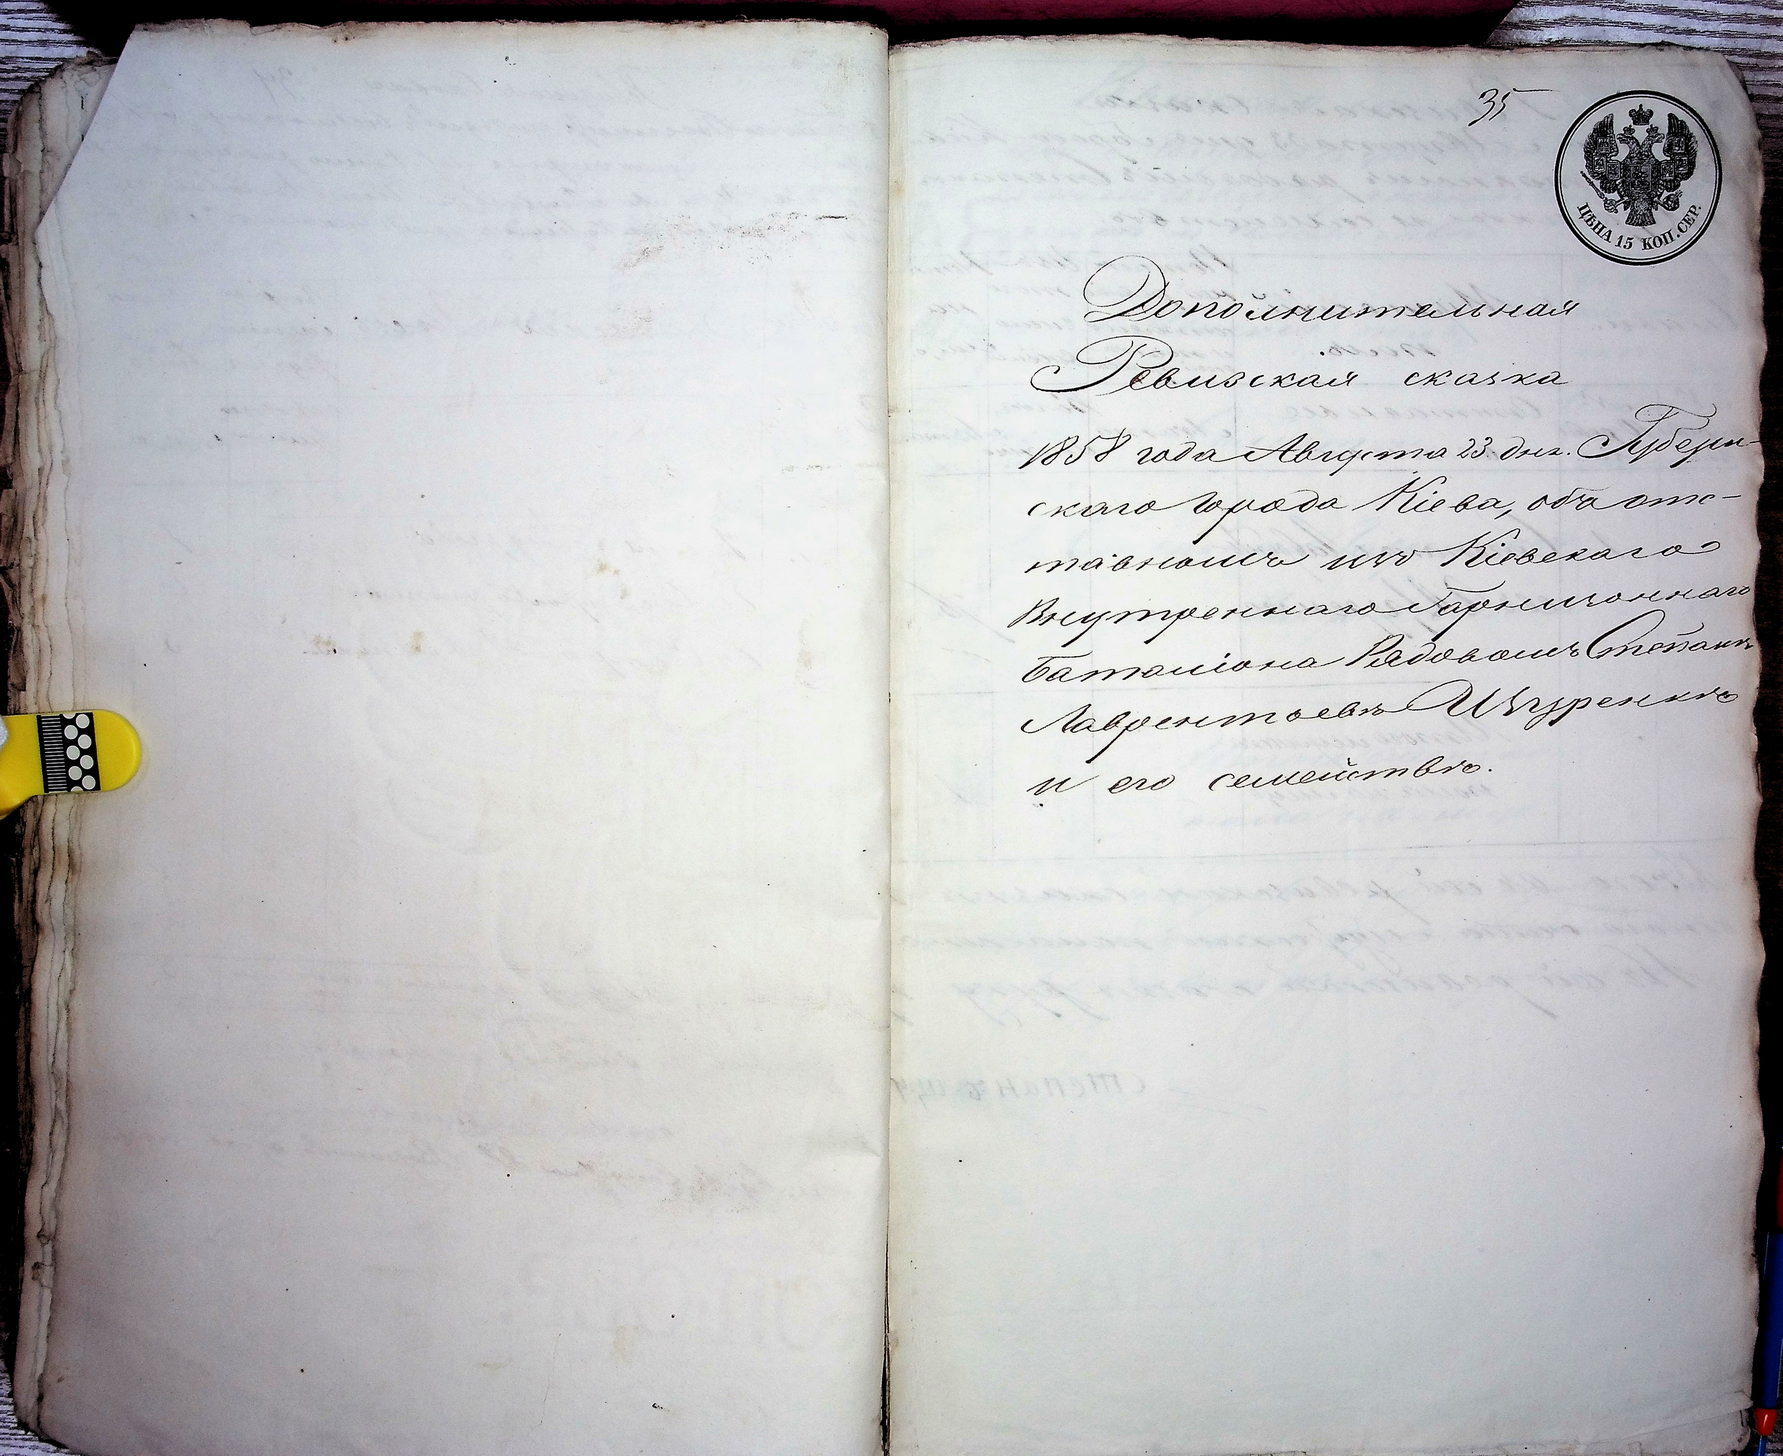 35
ЦѢНА 15 КОП. СЕР.
Дополнительная
Ревизская сказка
1858 года Августа 23 дня. Губерн-
скаго города Кіева, объ отс-
тавномъ изъ Кіевскаго
Внутренняго Гарнизоннаго
Баталіона Рядовомъ Степанѣ
Лаврентьевѣ
и его семействѣ.